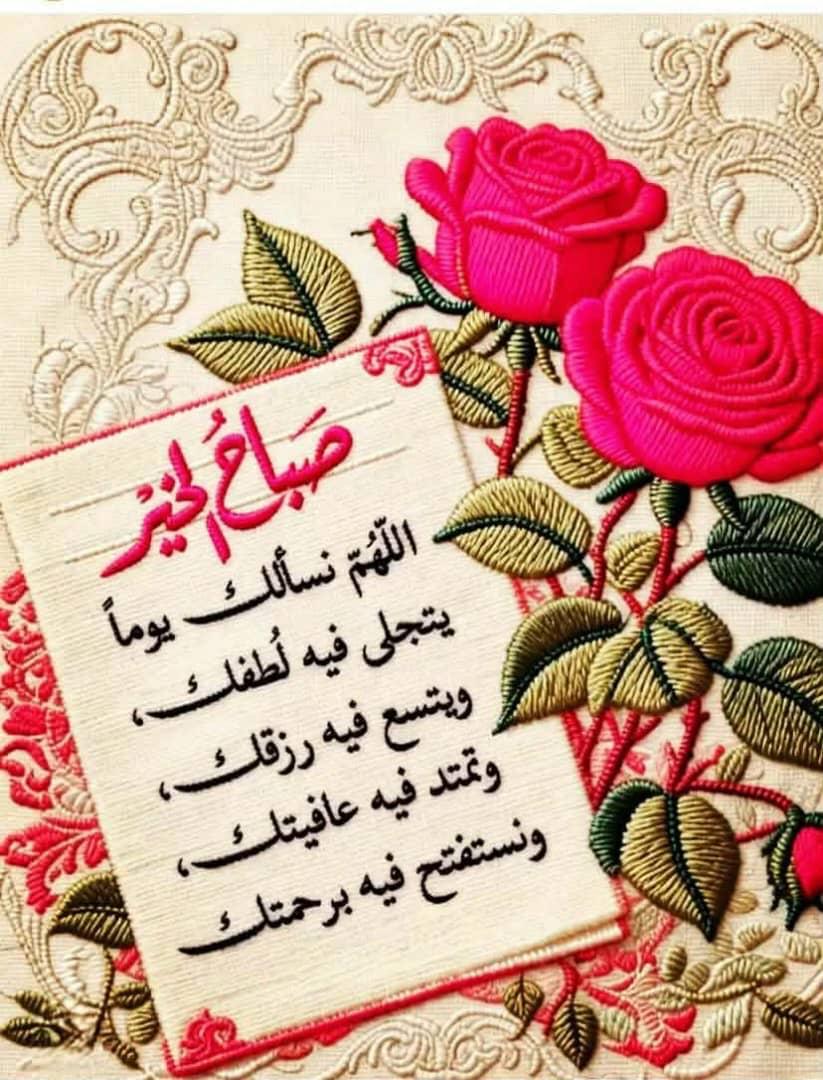 صَباحُ الخيْر
اللّهُمّ نسألك يوماً
يتجلى فيه لُطفك،
ويتسع فيه رزقك،
وتمتد فيه عافيتك،
ونستفتح فيه برحمتك